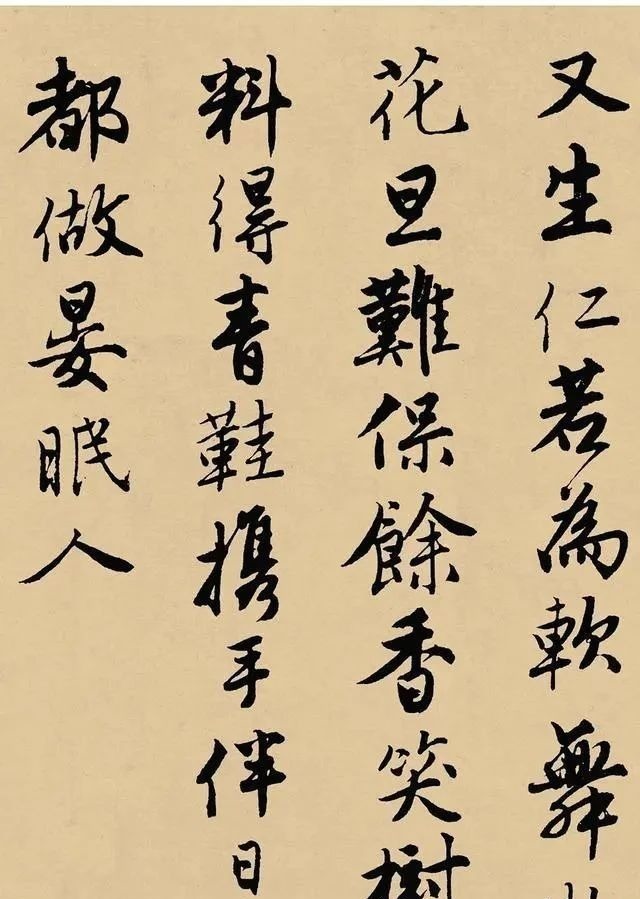 又生仁若為軟舞
花旦難保餘香笑樹
料得青鞋携手伴日
都做晏眠人